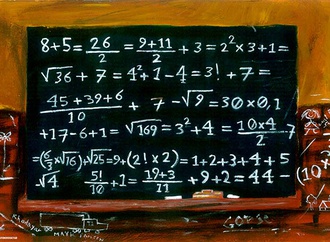 8+5= 26/2 = 9+11/2 +3=2²×3+1=
√36 + 7 = 4²+1-4 = 3! +7=
45+39+6/10 + 7 -√9 =30×0,1
+17-6+1= √169 =3²+4= 10×4/2 -7
=(6/3×√16)+√25=9+(2!×2)=1+2+3+4+5
√4 5!/10 +1= 19+3/11 +9+2=44-